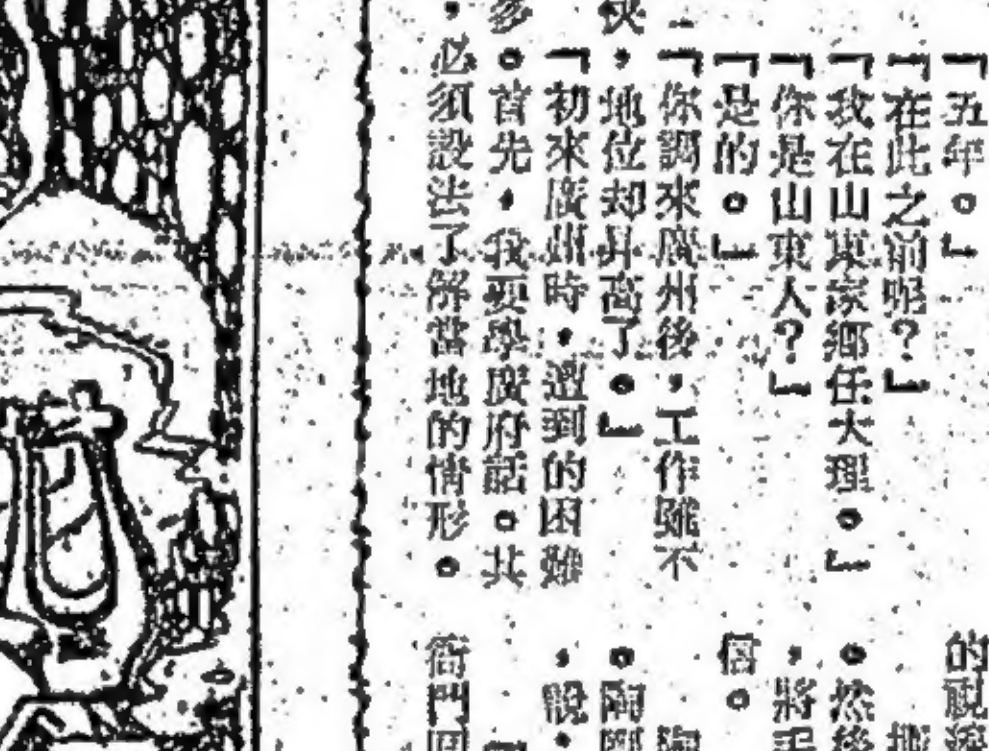 「五年。」
「在此之前呢？」
「我在山東家鄉任大理。」
「你是山東人？」
「是的。」
「你調來廣州後，工作雖不
，地位却昇高了。」
「初來廣州時，遭到的困難
。首先，我要學廣府話。其
，必須設法了解當地的情形。
的
。然後
，將
信。
。陶
，說，
衙門回